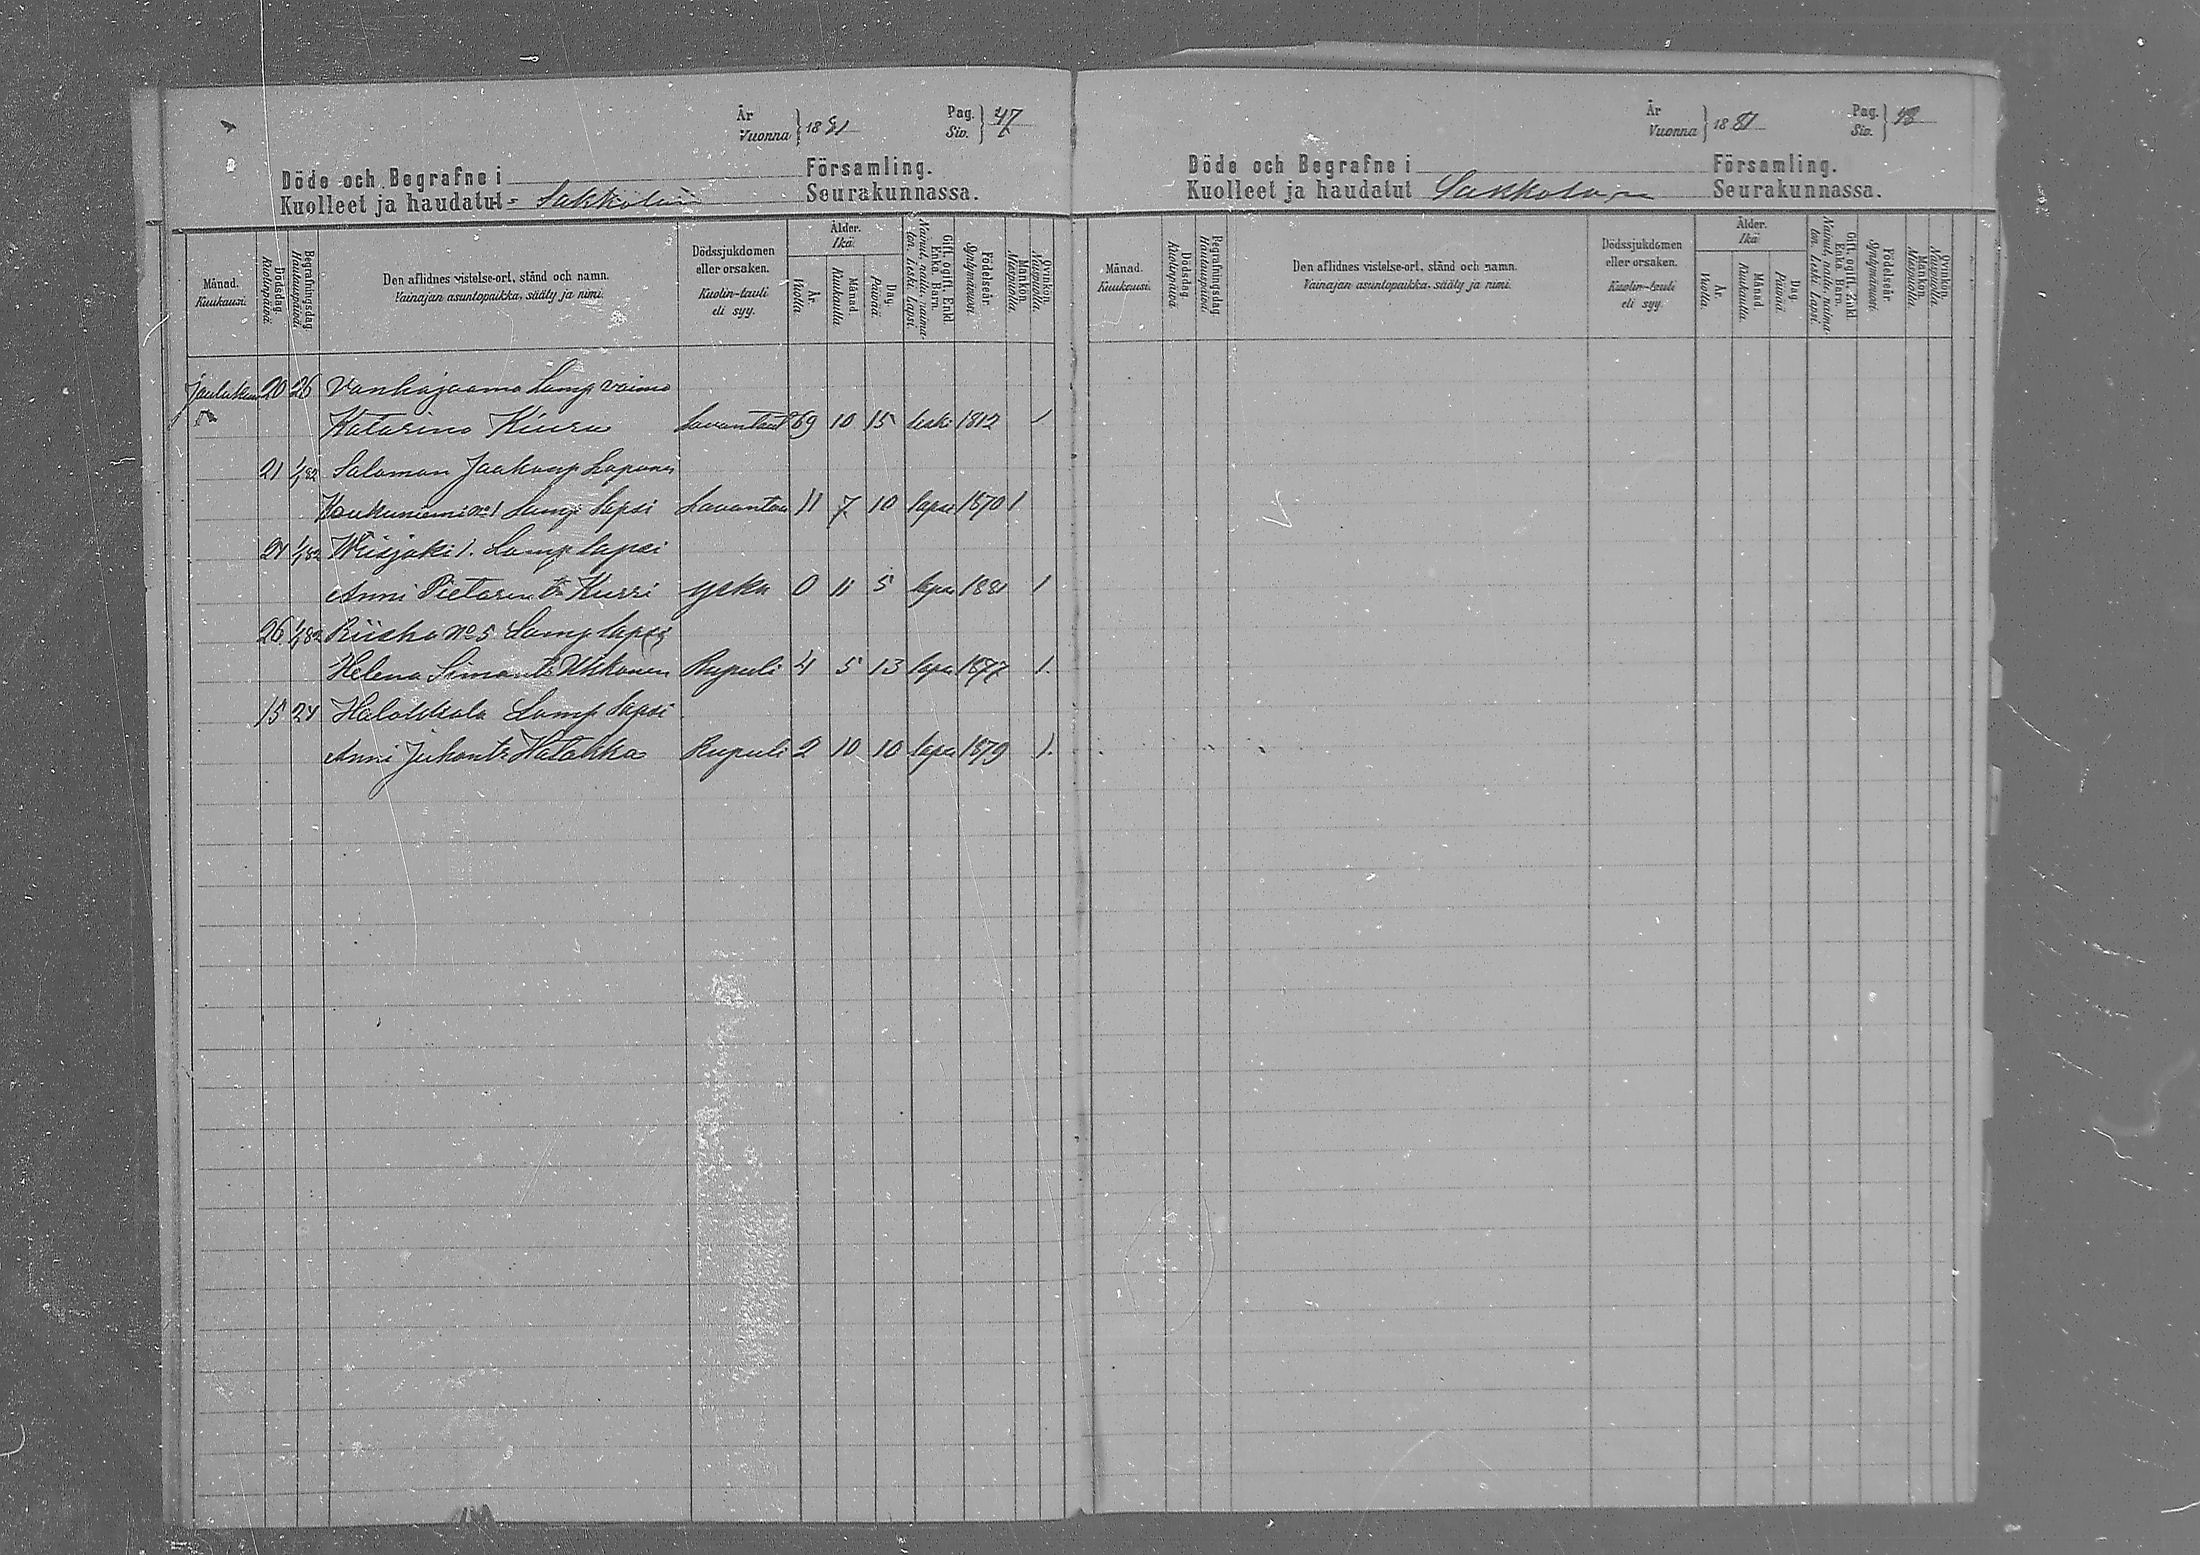 År
Vuonna } 1881
Pag.
Siv. } 47
Döde och Begrafne i Församling.
Kuolleet ja haudatut Sakkolan Seurakunnassa.
Månad. Kuukausi.
Dödsdag. Kuolinpäivä.
Begrafningsdag. Hautauspäivä.
Den aflidnes vistelse-ort, stånd och namn.
Vainajan asuntopaikka, sääty ja nimi.
Dödssjukdomen eller orsaken.
Kuolin-tauli eli syy.
Ålder. Ikä.
År. Vuotta.
Månad. Kuukautta
Dag. Päivää
Gift, ogift, Enkl. Enka, Barn. Nainut, natu, naima-ton, leski, lapsi.
Födelseår. Syntymävuosi.
Mankön. Miespuolia.
Qvinkön. Vaimopuolia.
Joulukuu 20 26 Vanhajaama Lamp vaimo
Katarina Kiuru Lavantaut 69 10 15 leski 1812 1
21 1/1 82 Salomon Jaakonp Laponen
Koukunniemi No 1 Lamp lapsi Lavantau 11 7 10 lapsi 1870 1
24 1/1 82 Wiisjoki 1. Lamp lapsi
Anni Pietarint Kurri yskä 0 11 5 lapsi 1881 1
26 1/1 82 Riiska No 5 Lamp lapsi
Helena Simont Ukkonen Rupuli 4 5 13 lapsi 1877 1.
15 24 Halakkala Lamp lapsi
Anni Juhont Hatakka Rupuli 2 10 10 lapsi 1879 1.
År
Vuonna } 1881
Pag.
Siv. } 48
Döde och Begrafne i Församling.
Kuolleet ja haudatut Sakkolan Seurakunnassa.
Månad. Kuukausi.
Dödsdag. Kuolinpäivä.
Begrafningsdag. Hautauspäivä.
Den aflidnes vistelse-ort, stånd och namn.
Vainajan asuntopaikka, sääty ja nimi.
Dödssjukdomen eller orsaken.
Kuolin-tauli eli syy.
Ålder. Ikä.
År. Vuotta.
Månad. Kuukautta.
Dag. Päivää
Gift, ogift, Enkl. Enka, Barn. Nainut, natu, naima-ton, leski, lapsi.
Födelseår. Syntymävuosi.
Mankön. Miespuolia.
Qvinkön. Vaimopuolia.